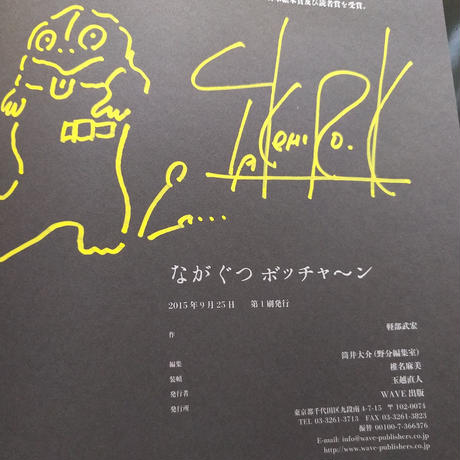 本絵本賞及び読者賞を受賞。
TAKEHIRO.K
ながぐつ ボッチャ〜ン
2015年9月25日 第1刷発行
作 軽部武宏
編集 筒井大介(野分編集室)
装幀 椎名麻美
発行者 玉越直人
発行所 WAVE出版
東京都千代田区九段南4-7-15 〒102-0074
TEL 03-3261-3713 FAX 03-3261-3823
振替 00100-7-366376
E-mail: info@wave-publishers.co.jp
http://www.wave-publishers.co.jp